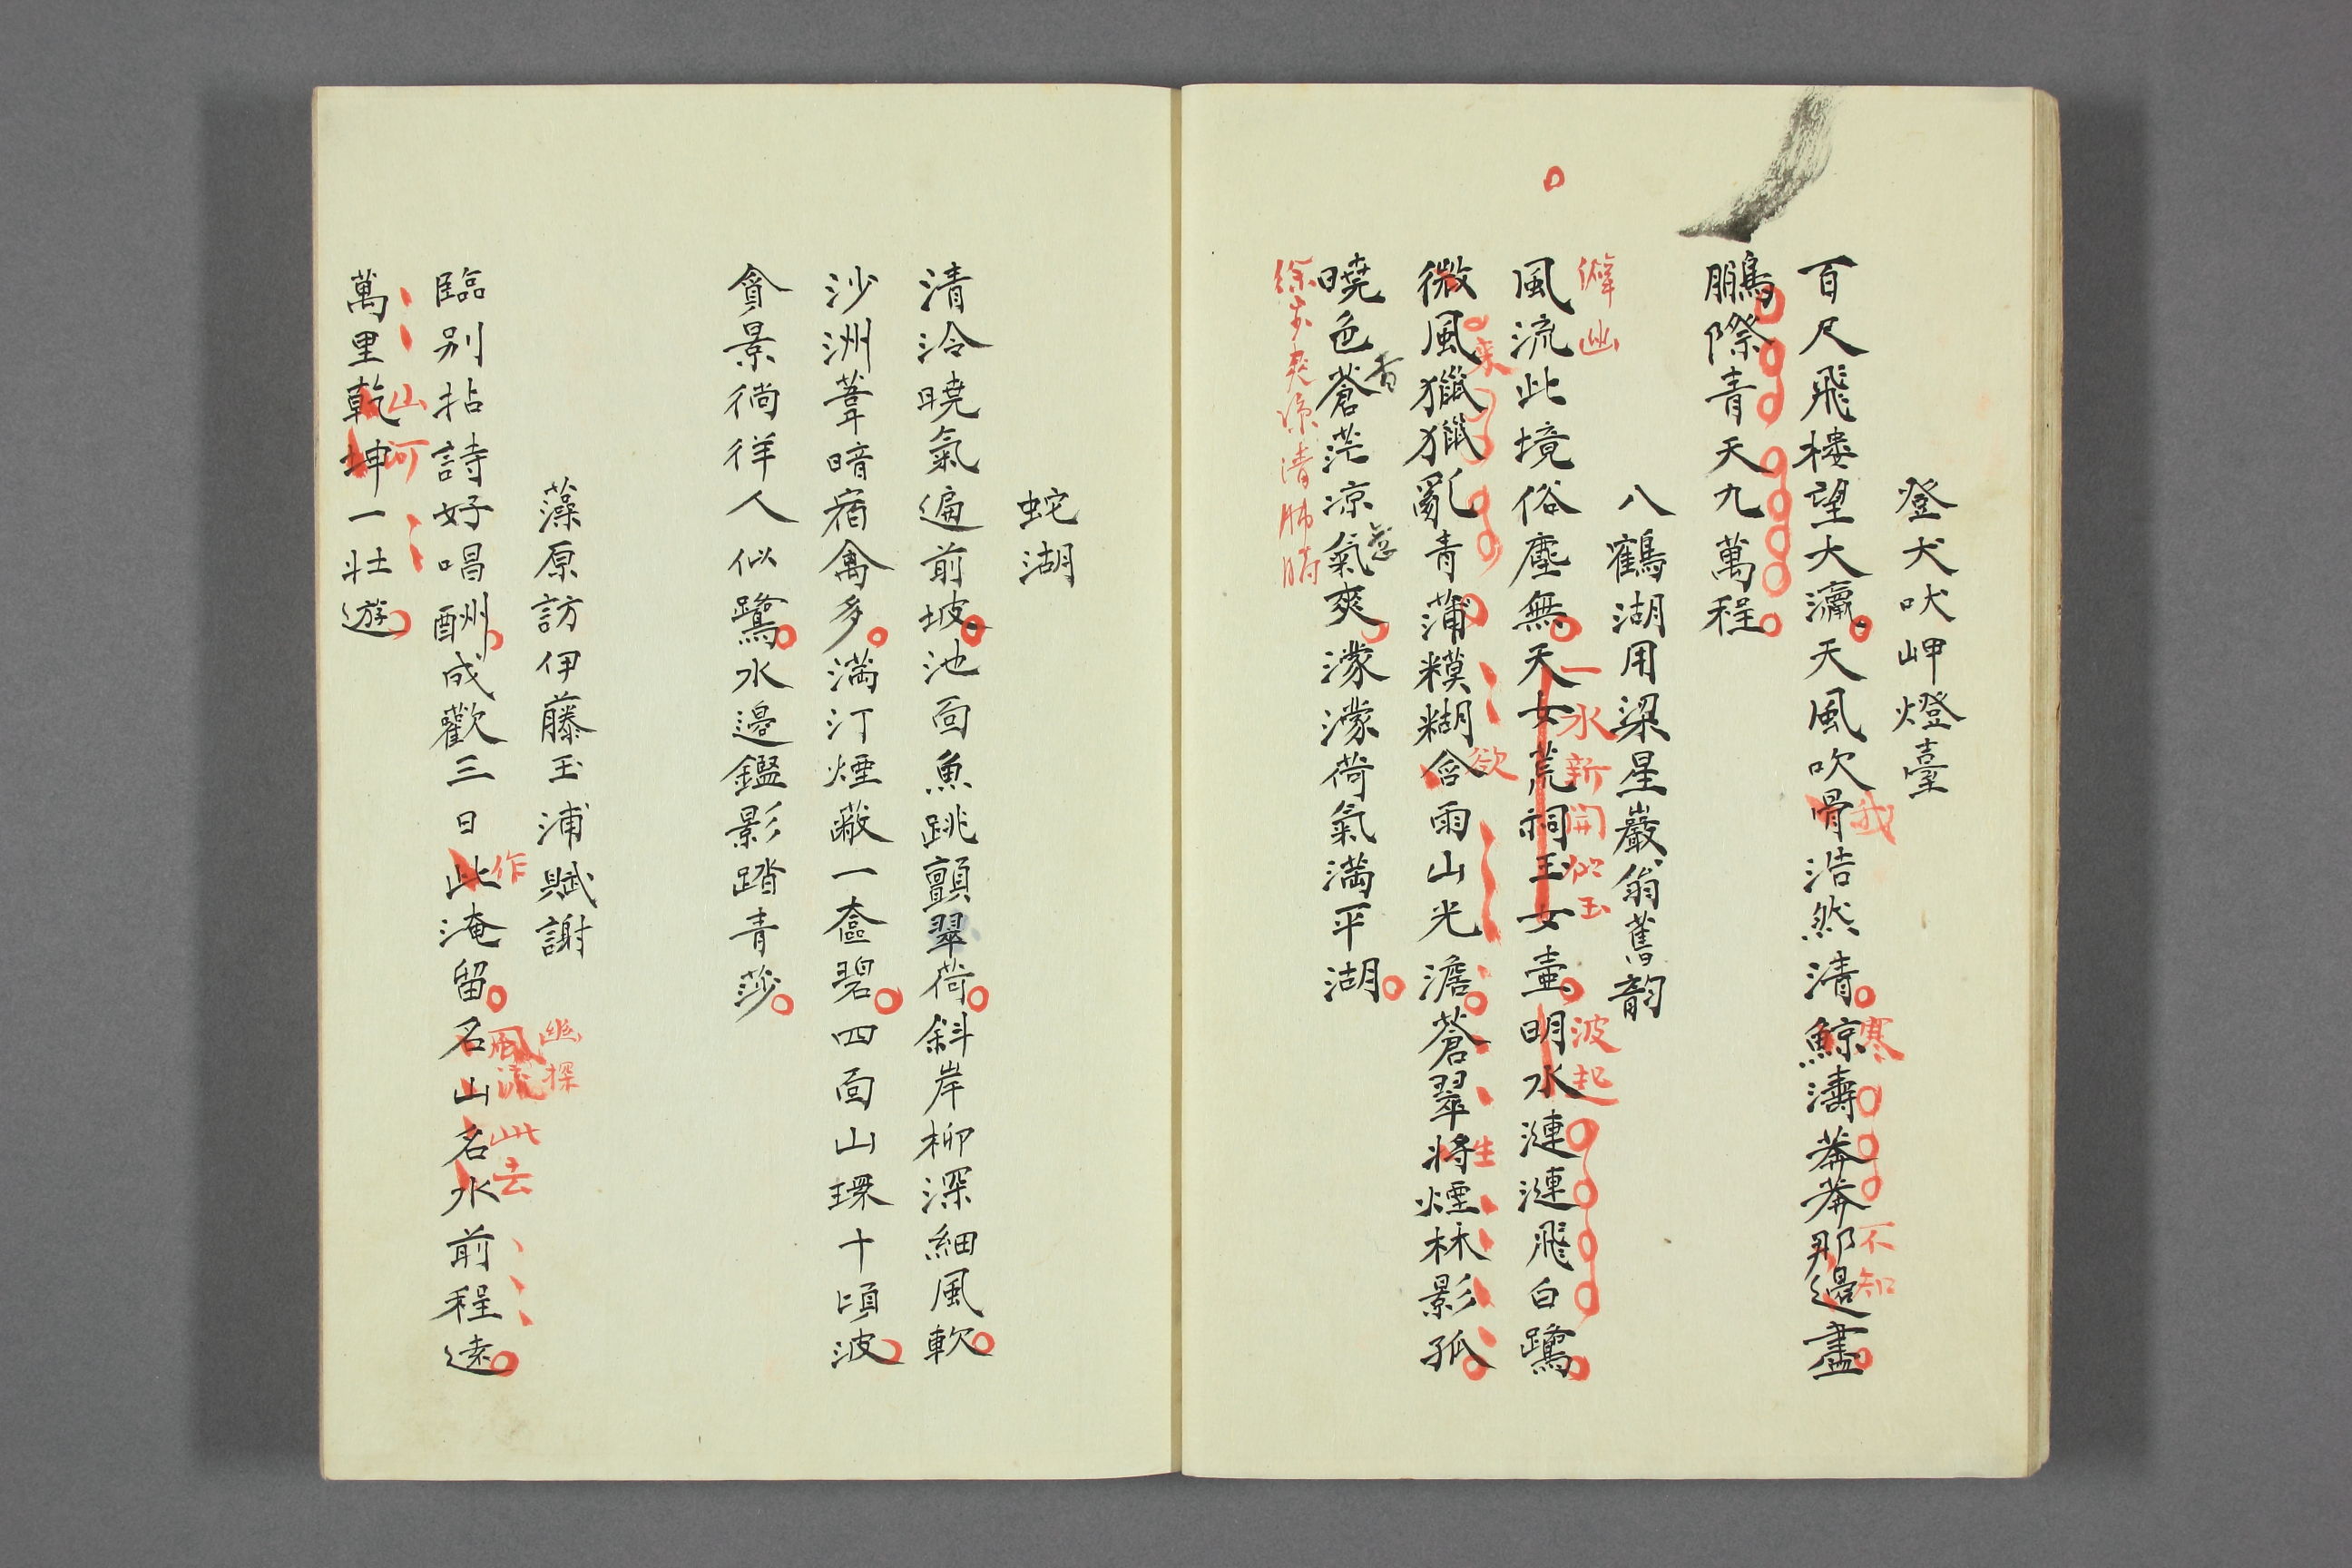 登犬吠岬燈臺
百尺飛樓望大瀛天風吹骨浩然清鯨濤莽莽那邊盡
我
寒
不知
鵬際青天九萬程
八鶴湖用梁星巖翁舊韵
僻幽
一水新開似玉
波起
風流此境俗塵無天女荒祠玉女壷明水漣漣飛白鷺
来
欲
生
微風獵獵亂青蒲糢糊含雨山光澹蒼翠将煙林影孤
曉色蒼茫凉氣爽濛濛荷氣満平湖
徐步爽凉清肺腑
蛇湖
清冷曉氣遍前坡池面魚跳顫翠荷斜岸柳深細風軟
沙洲葦暗宿禽多満汀煙蔽一奩碧四面山環十頃波
貪景徜徉人似鷺水邊鑑影踏青莎
藻原訪伊藤玉浦賦謝
幽探
作
風流此去
臨別拈詩好唱酬成歡三日此淹留名山名水前程遠
山河
萬里乾坤一壮遊